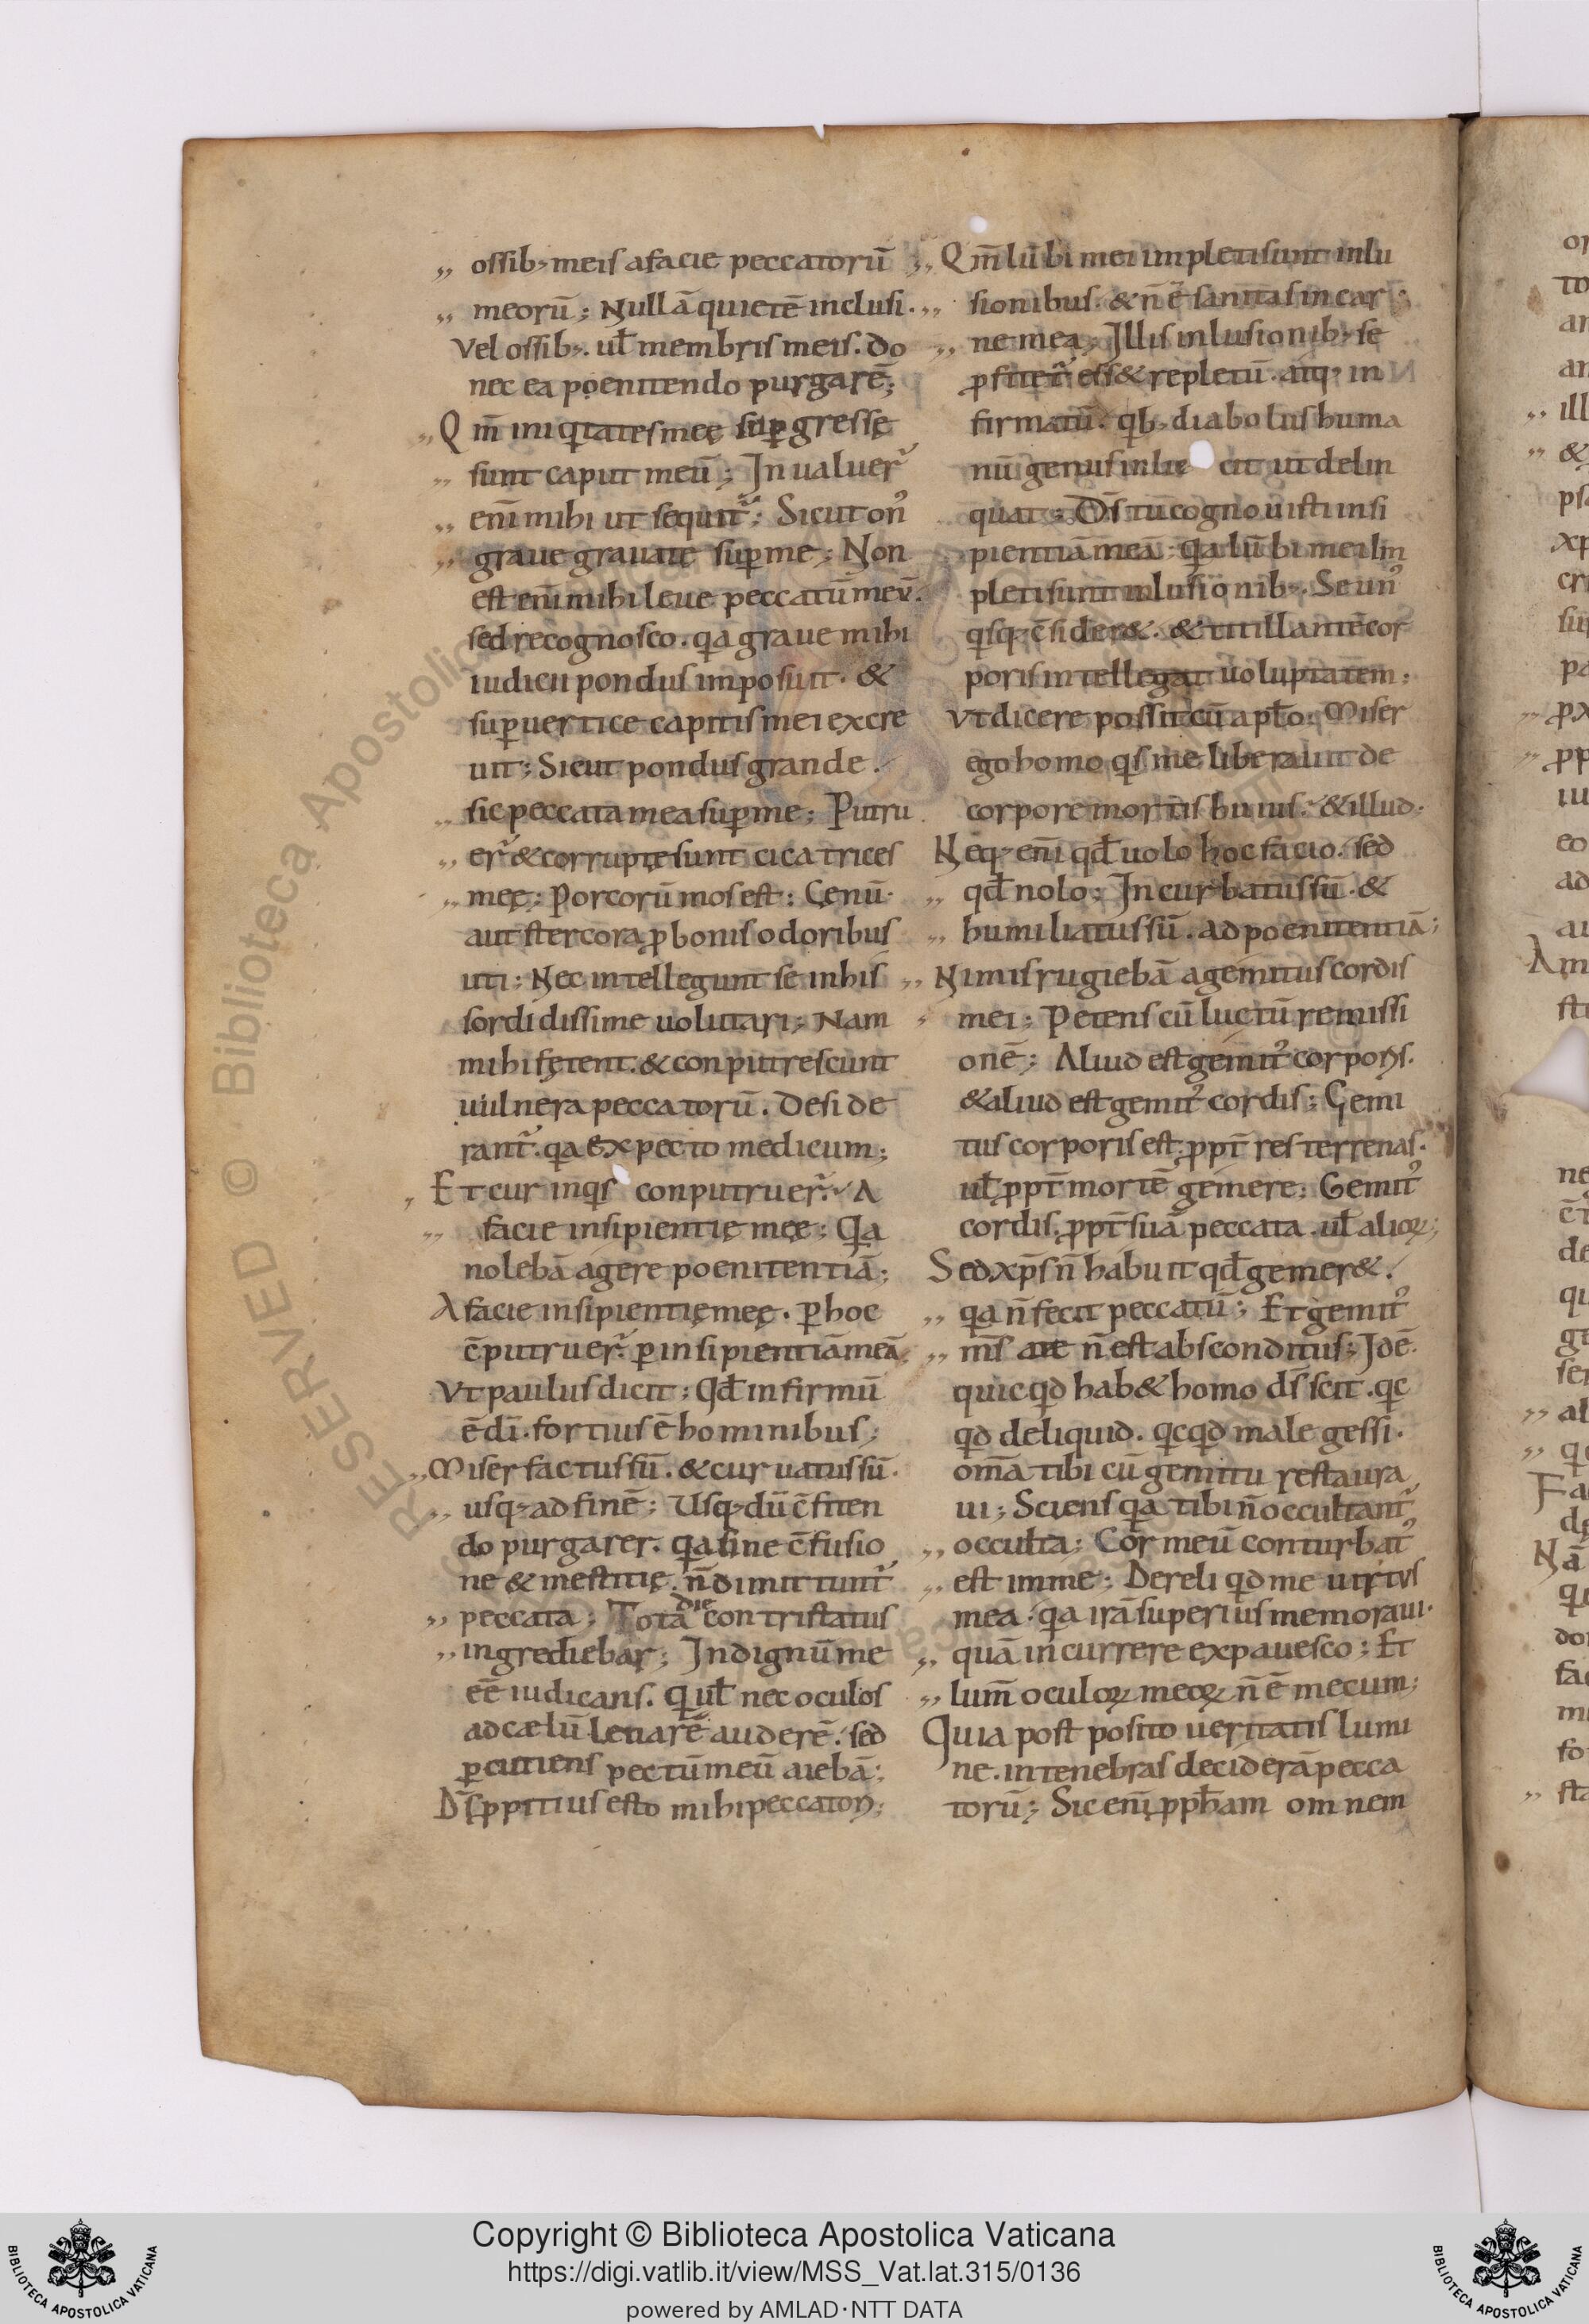 ossib; meis a facie peccatorū
meorū; Nullā quietē inclusi.
Vel ossib;. ul̄ membris meis. do
nec ea poenitendo purgarē;
Qm̄ iniq̄tates meę sup̄gressę
sunt caput meū; Inualuer̄
enī mihi ut sequit̄; Sicut on᾽
graue grauate sup̄ me; Non
est enī mihi leue peccatū meū.
sed recognosco. qa graue mihi
iudicii pondus imposuit. &
sup̄ uertice capitis mei excre
uit; Sicut pondus grande.
sic peccata mea sup̄ me; Putru
er̄ & corruptę sunt cicatrices
meę; Porcorū mos est; Cęnū.
aut stercora, ꝓ bonis odoribus
uti; Nec intellegunt se in his
sordidissime uolutari; Nam
mihi fętent. & conputrescunt
uulnera peccatorū. Deside
rant̄. qa expecto medicum;
Et cur inqs conputruer̄. A
facie insipientię meę; Qa
nolebā agere poenitentiā;
A facie insipientię meę. ꝑ hoc
c̄putruer̄. ꝑ insipientiā meā;
Vt paulus dicit; Qd̄ infirmū
ē dī. fortius ē hominibus;
Miser factus sū. & curuatus sū.
usq; ad finē; Usq; dū c̄fiten
do purgarer. qa sine c̄fusio
ne & mestitię. n̄ dimittunt̄
peccata; Totā die contristatus
ingrediebar; Indignū me
eē iudicans. q ul̄ nec oculos
ad cælū leuarē auderē. sed
ꝑcutiens pectū meū aiebā;
Ds̄ ꝓpitius esto mihi peccatori;
Qm̄ lūbi mei impleti sunt inlu
sionibus. & n̄ ē sanitas in car
ne mea; Illis inlusionib; se
ꝓfitet̄ ess& repletū. atq; in
firmatū. qb; diabolus huma
nū genus inlicit ut delin
quat; Ds̄ tu cognouisti insi
pientiā meā; qa lūbi mei im
pleti sunt inlusionib;. Se un᾽
qsq; c̄sider&. & titillantē cor
poris intellegat uoluptatem;
Vt dicere possit cū apl̄o; Miser
ego homo qs me liberauit de
corpore mortis huius. & illud.
Neq; enī qd̄ uolo hoc facio. sed
qd̄ nolo; Incurbatus sū. &
humiliatus sū. ad poenitentiā;
Nimis rugiebā a gemitus cordis
mei; Petens cū luctū remissi
onē; Aliud est gemit᾽ corporis.
& aliud est gemit᾽ cordis; Gemi
tus corporis est, ꝓpt̄ res terrenas.
ul̄ ꝓpt̄ mortē gemere; Gemit᾽
cordis, ꝓpt̄ suā peccata. ul̄ alioꝝ;
Sed xp̄s n̄ habuit qd̄ gemer&.
qa n̄ fecit peccatū; Et gemit᾽
m̄s a te n̄ est absconditus; Idē.
quicqd hab& homo ds̄ scit. qc
qd deliquid. qcqd male gessi.
om̄a tibi cū gemitu restaura
ui; Sciens qa tibi n̄ occultant̄
occulta; Cor meū conturbat᾽
est in me; Dereliqd me uirtus
mea. qa irā superius memoraui.
quā incurrere expauesco; Et
lum̄ oculoꝝ meoꝝ n̄ ē mecum;
Quia postposito ueritatis lumi
ne. in tenebras deciderā pecca
torū; Sic enī, ꝓph̄am omnem
Copyright © Biblioteca Apostolica Vaticana
https://digi.vatlib.it/view/MSS_Vat.lat.315/0136
powered by AMLAD·NTT DATA
BIBLIOTECA APOSTOLICA VATICANA
BIBLIOTECA APOSTOLICA VATICANA